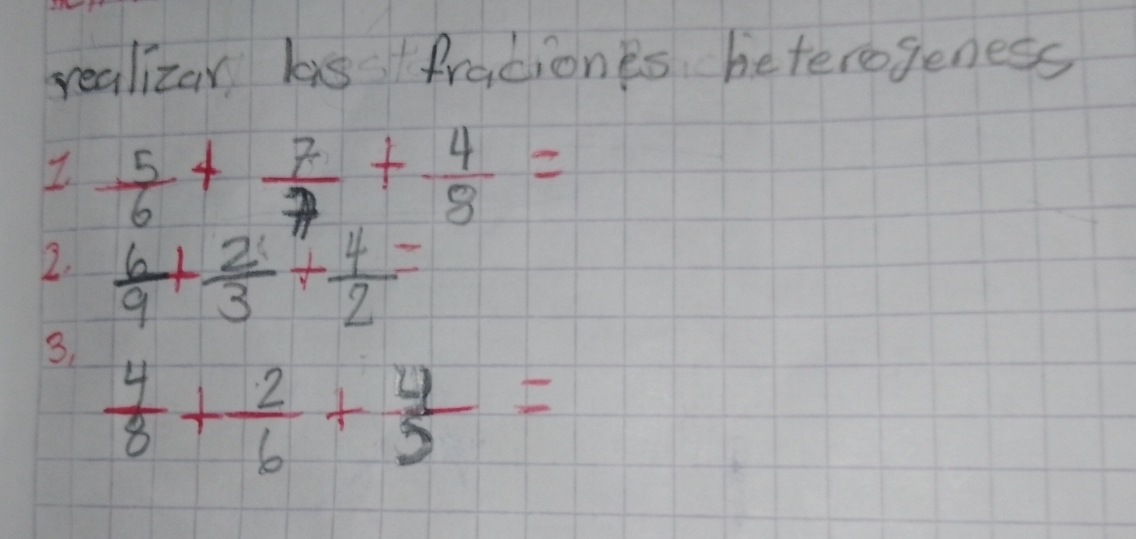 realizar las fraciones heterogeness
1. 5/6 + 7/7 + 4/8 =
2. 6/9 + 2/3 + 4/2 =
3. 4/8 + 2/6 + 4/5 =